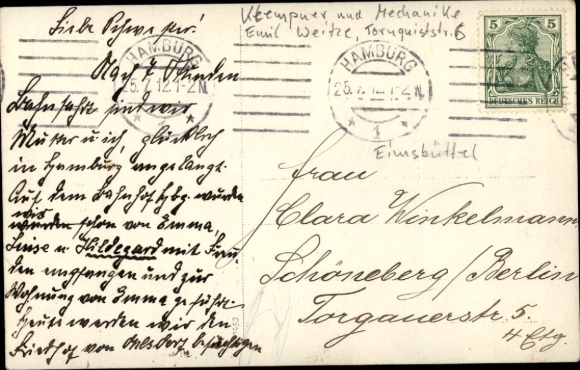 Liebe Schwester!
Nach 7 Stunden
Bahnfahrt sind wir
Mutter u ich, glücklich
in Hamburg angelangt.
Auf dem Bahnhof Hbg. wurden
wir
wurden schon von Emma,
Luise u Hildegard mit Freu
den empfangen und zur
Wohnung von Emma geführt
Heute werden wir den
Friedhof von Ohlsdorf besichtigen
Klempner und Mechanike
Emil Weitze, Tornquiststr. 6
HAMBURG
25. 7. 12. 1-2 N.
* 1 *
HAMBURG
25. 7. 12. 1-2 N.
* 1 *
5 5
DEUTSCHES REICH
Eimsbüttel
Frau
Clara Winkelmann
Schöneberg/Berlin
Torgauerstr. 5.
4 Etg.